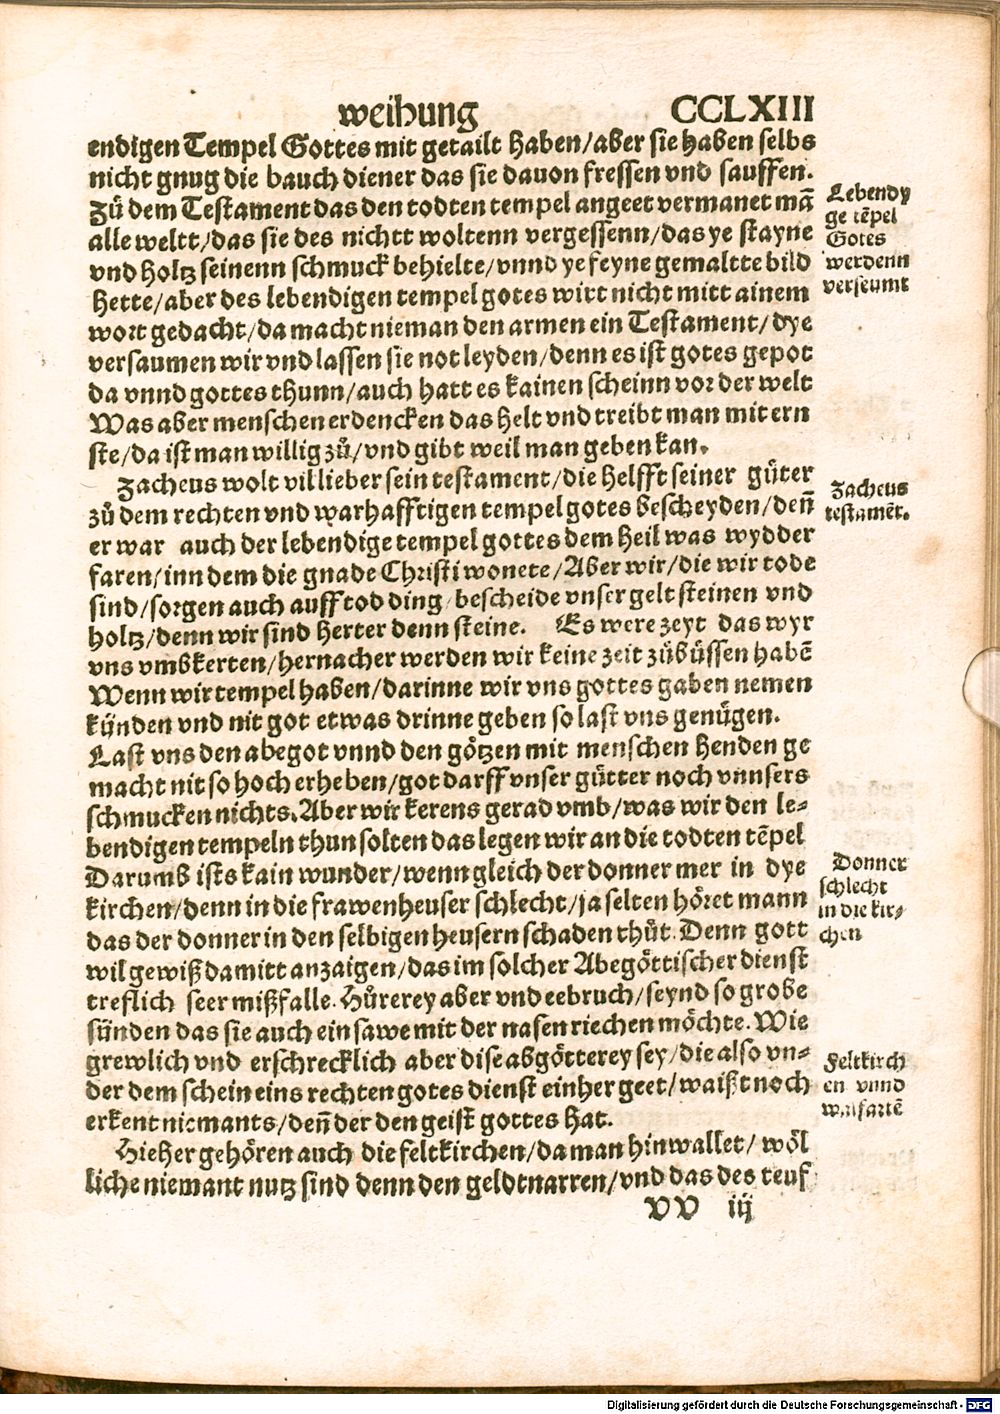 weihung CCLXIII
endigen Tempel Gottes mit getailt haben/aber sie haben selbs
nicht gnug die bauch diener das sie dauon fressen vnd sauffen.
Zů dem Testament das den todten tempel angeet vermanet mā
alle weltt/das sie des nichtt woltenn vergessenn/das ye stayne
vnd holtz seinenn schmuck behielte/vnnd ye feyne gemaltte bild
hette/aber des lebendigen tempel gotes wirt nicht mitt ainem
wort gedacht/da macht nieman den armen ein Testament/dye
versaumen wir vnd lassen sie not leyden/denn es ist gotes gepot
da vnnd gottes thunn/auch hatt es kainen scheinn vor der welt
Was aber menschen erdencken das helt vnd treibt man mit ern
ste/da ist man willig zů/vnd gibt weil man geben kan.
Zacheus wolt vil lieber sein testament/die helfft seiner güter
zů dem rechten vnd warhafftigen tempel gotes bescheyden/deñ
er war auch der lebendige tempel gottes dem heil was wydder
faren/inn dem die gnade Christi wonete/Aber wir/die wir tode
sind/sorgen auch auff tod ding/bescheide vnser gelt steinen vnd
holtz/denn wir sind herter denn steine. Es were zeyt das wyr
vns vmbkerten/hernacher werden wir keine zeit zůbüssen habē
Wenn wir tempel haben/darinne wir vns gottes gaben nemen
künden vnd nit got etwas drinne geben so last vns genügen.
Last vns den abegot vnnd den götzen mit menschen henden ge
macht nit so hoch erheben/got darff vnser gütter noch vnnsers
schmucken nichts. Aber wir kerens gerad vmb/was wir den le-
bendigen tempeln thun solten das legen wir an die todten tēpel
Darumb ists kain wunder/wenn gleich der donner mer in dye
kirchen/denn in die frawenheuser schlecht/ja selten höret mann
das der donner in den selbigen heusern schaden thůt. Denn gott
wil gewiß damitt anzaigen/das im solcher Abegöttischer dienst
treflich seer mißfalle. Hůrerey aber vnd eebruch/seynd so grobe
sünden das sie auch ein sawe mit der nasen riechen möchte. Wie
grewlich vnd erschrecklich aber dise abgötterey sey/die also vn-
der dem schein eins rechten gotes dienst einher geet/waißt noch
erkent niemants/deñ der den geist gottes hat.
Hieher gehören auch die feltkirchen/da man hin wallet/wöl
liche niemant nutz sind denn den geldtnarren/vnd das des teuf
VV iij
Lebendy
ge tēpel
Gotes
werdenn
verseumt
Zacheus
testamēt.
Donner
schlecht
in die kir-
chen
Feltkirch
en vnnd
walfartē
Digitalisierung gefördert durch die Deutsche Forschungsgemeinschaft - DFG